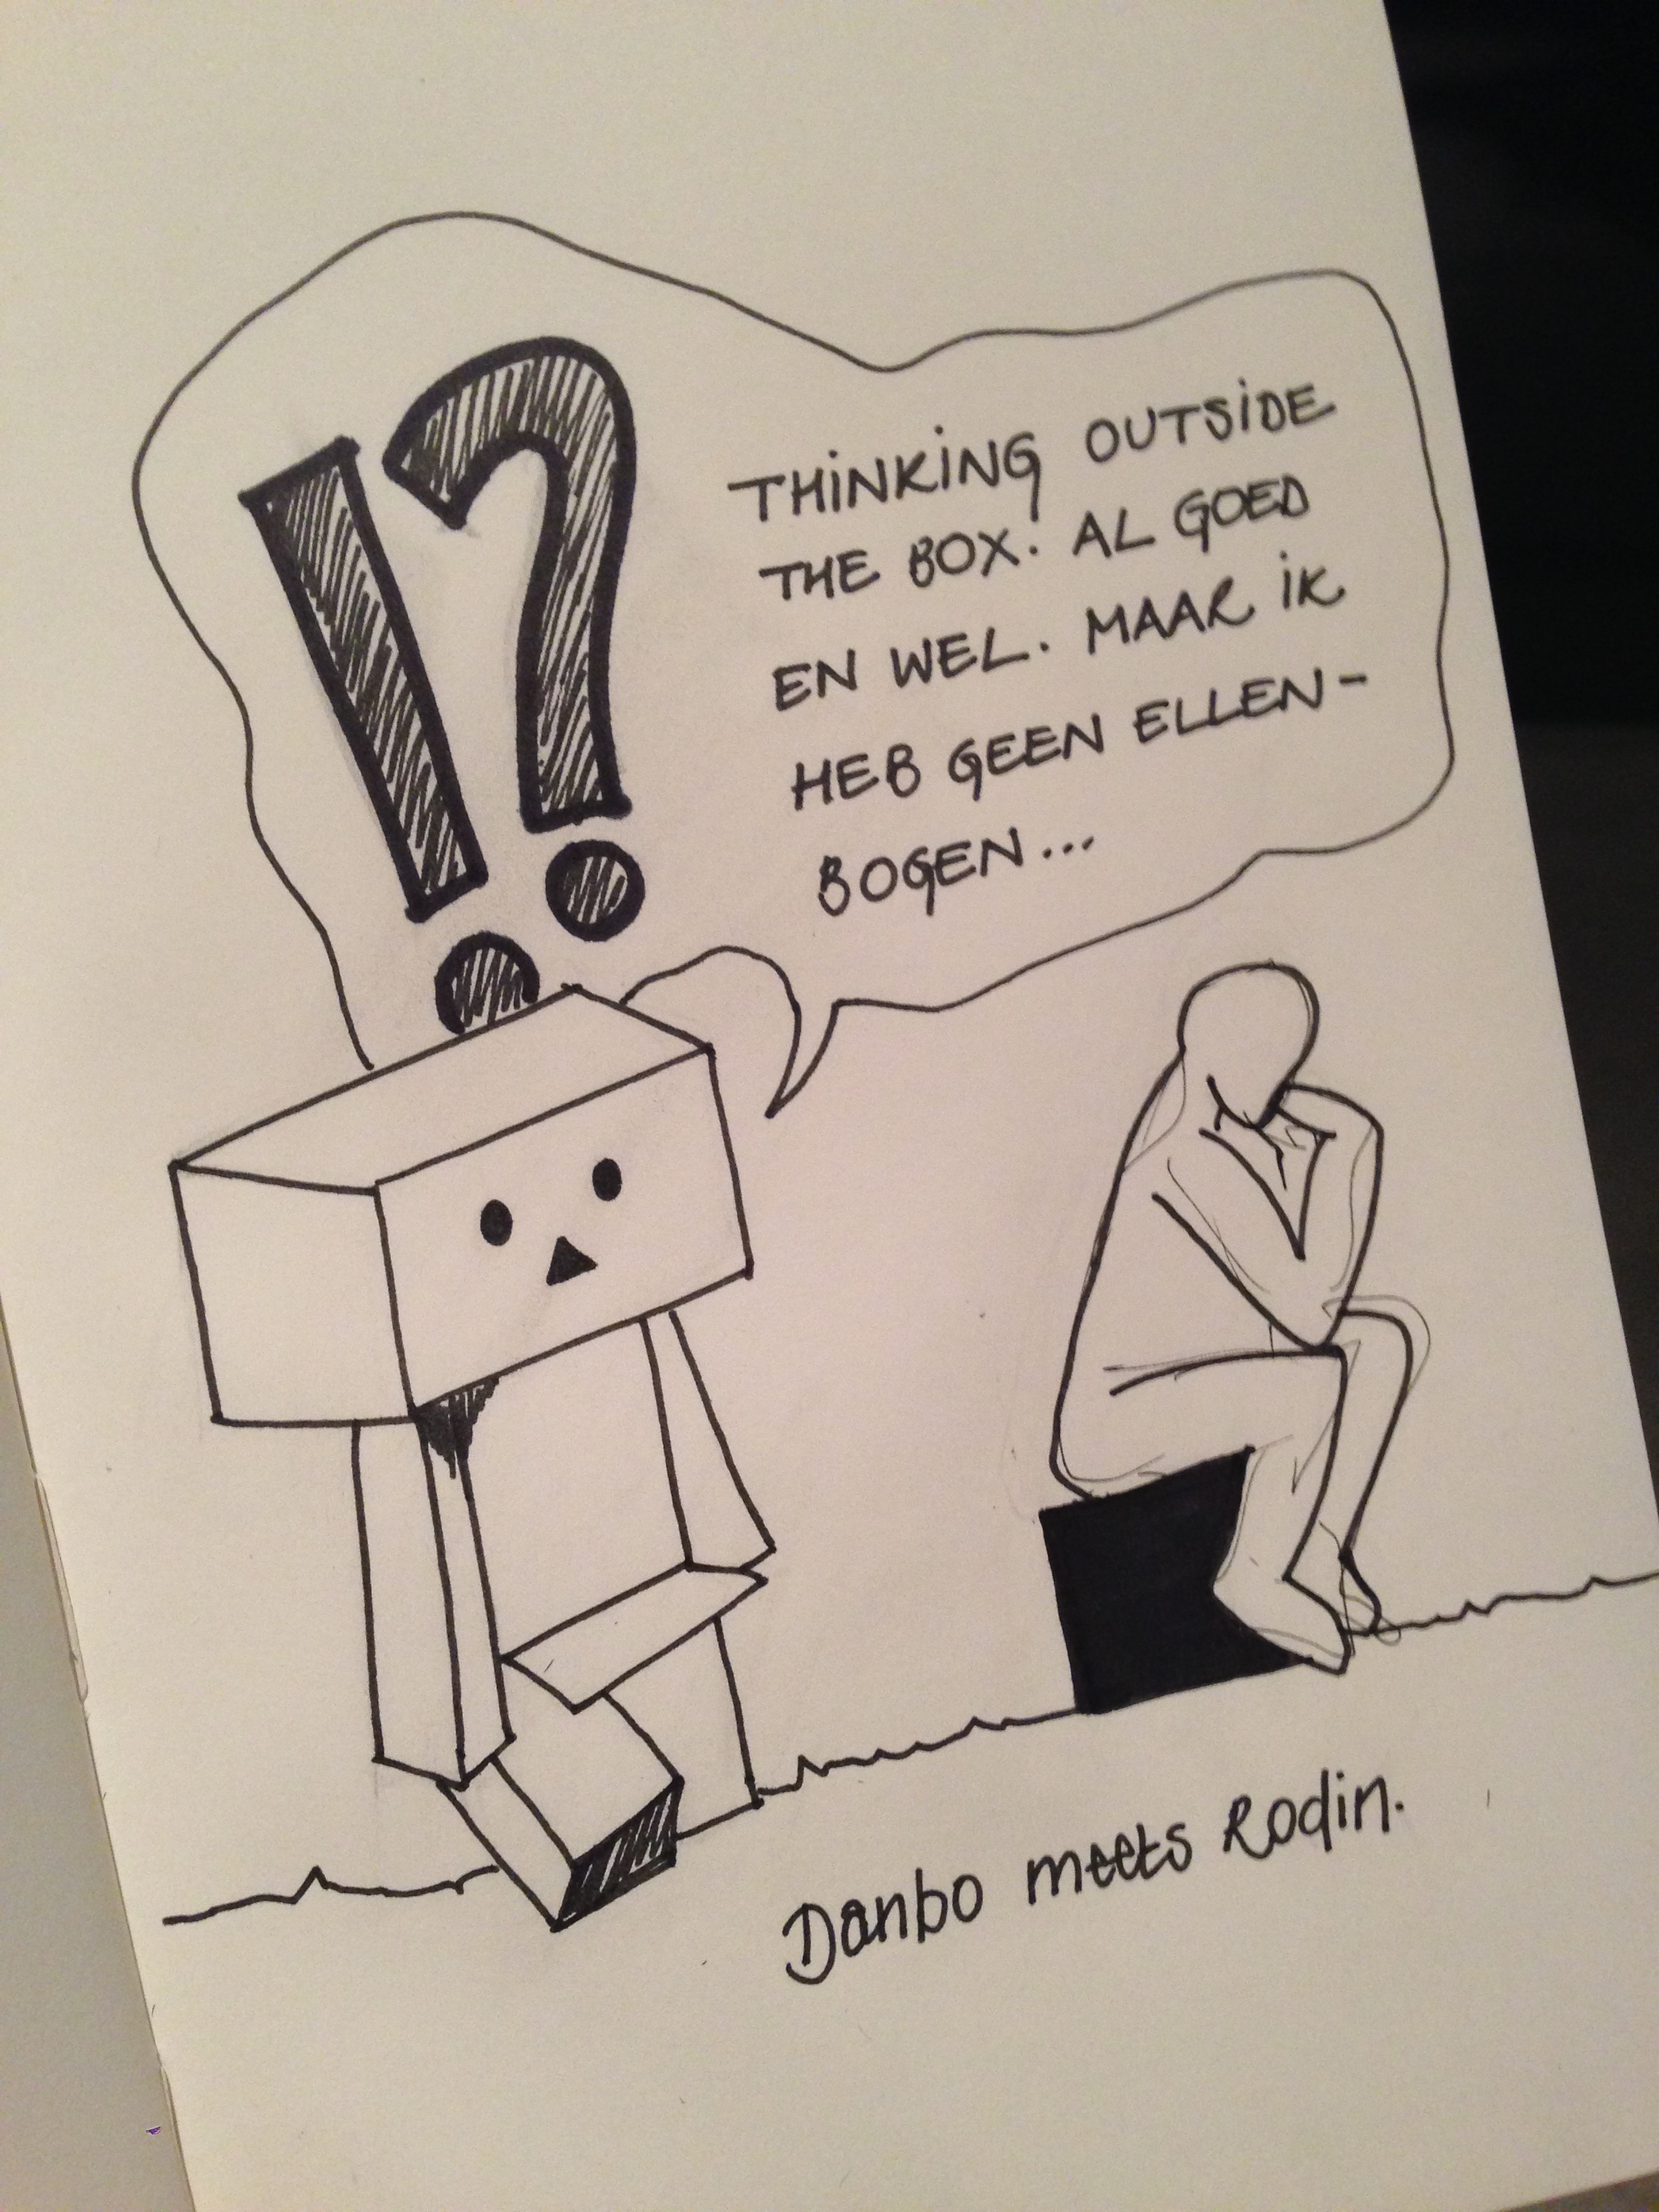 !?
THINKING OUTSIDE
THE BOX. AL GOED
EN WEL. MAAR IK
HEB GEEN ELLEN-
BOGEN...
Danbo meets Rodin.